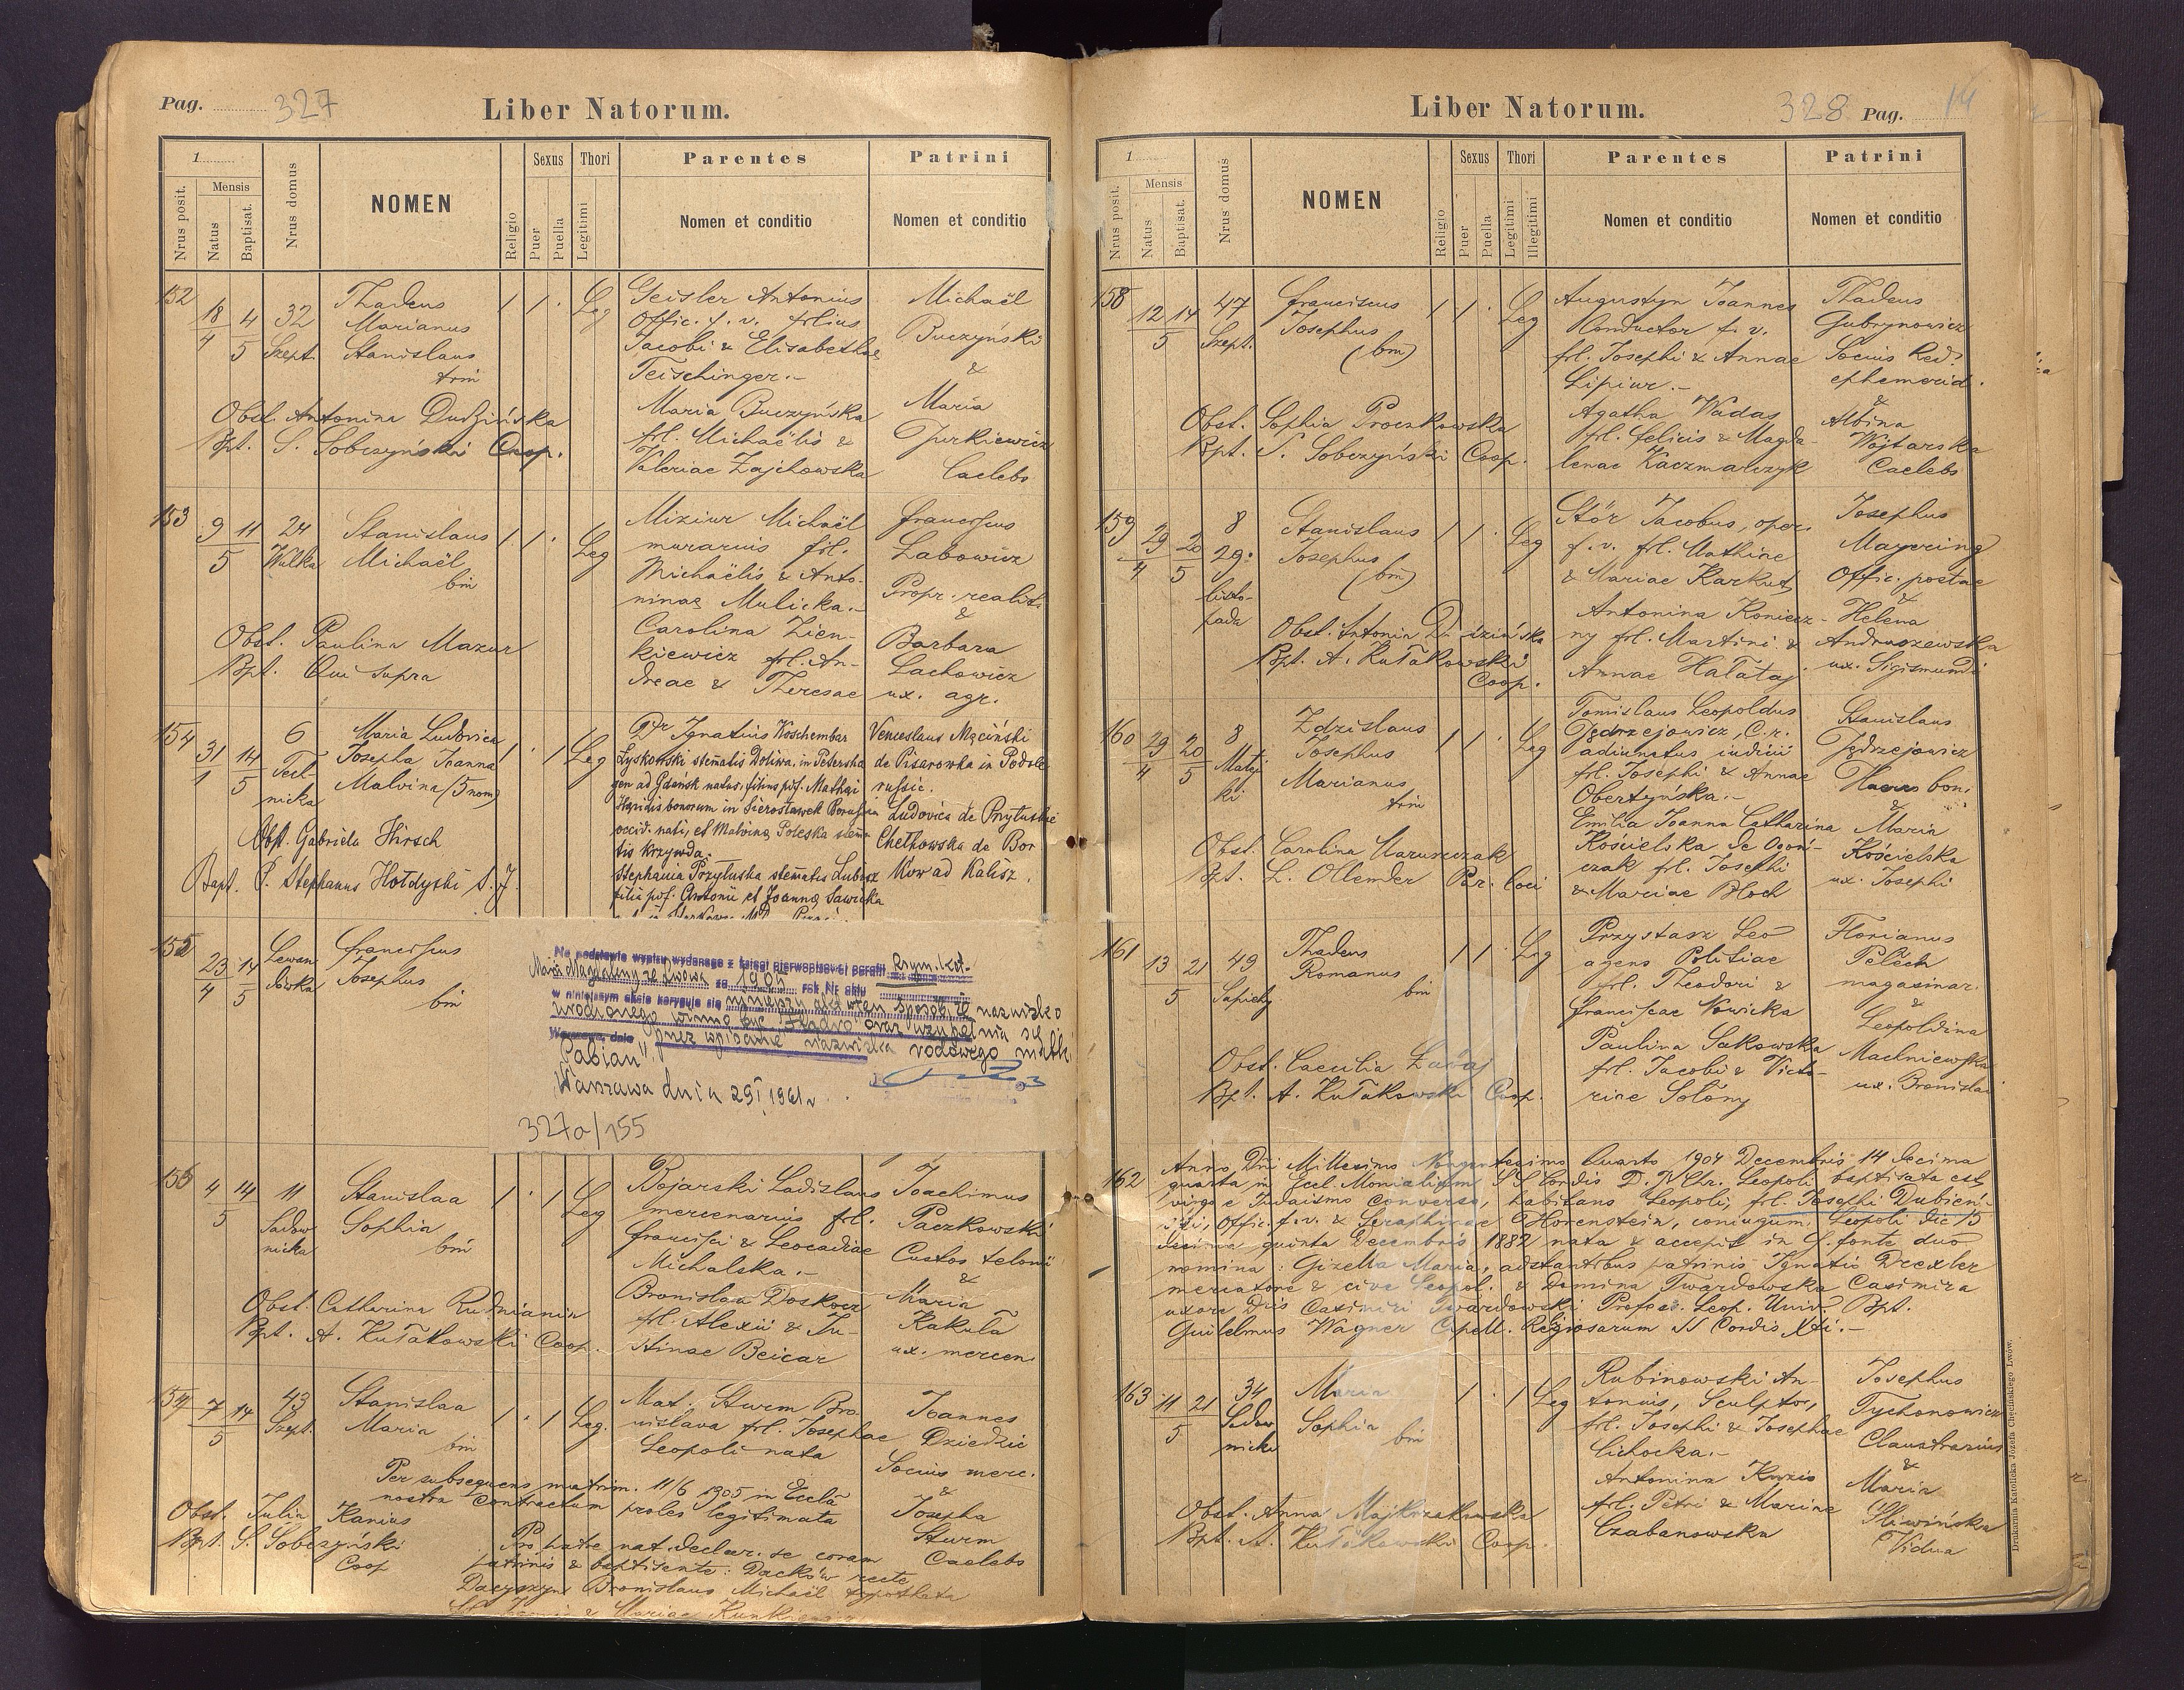 Pag. 327
Liber Natorum.
1
Nrus posit.
Mensis
Natus
Baptisat.
Nrus domus
NOMEN
Religio
Sexus
Puer
Puella
Thori
Legitimi
Parentes
Nomen et conditio
Patrini
Nomen et conditio
152
18/4 4/5
32
Szept.
Thadeus
Marianus
Stanislaus
trin
1 1 . Leg
Geisler Antonius
Offic. f. v. filius
Jacobi & Elisabethae
Teischinger.-
Maria Buczyńska
fil. Michaëlis &
Valeriae Zajchowska
Michaël
Buczyński
&
Maria
Jurkiewicz
Caelebs
Obst. Antonina Dudzińska
Bpt. S. Sobczyński Coop.
153
9 11
5
24
Wulka
Stanislaus
Michaël
bin
1 1 . Leg
Miziur Michaël
murarius fil.
Michaëlis & Anto-
ninae Mulicka.-
Carolina Zien-
kiewicz fil. An-
dreae & Theresae
Franciscus
Labowicz
Propr. realit.
&
Barbara
Lachowicz
ux. agr.
Obst. Paulina Mazur
Bpt. Qui supra
154
31/1 14/5
6
Teat-
nicka
Maria Ludovica
Josepha Joanna
Malvina (5 nom)
1 . 1 Leg
Ignatius Koschembar
Łyskowski stematis Doliwa, in Petersha
gen ad Gdańsk natus, filius pńf. Mathai
Haeridis bonorum in Sierosławek Borussia
occid. nati, et Malvina Poleska stema
tis Krzywda.-
Stephania Przyłuska stematis Lubicz
filia pńf. Antonii et Joanna Sawicka
Venceslaus Męciński
de Pisarowka in Podole
russic.
Ludovica de Przyłuskie
Chełkowska de Bor
Mow ad Kalisz.
Obst. Gabriela Hirsch
Bapt. P. Stephanus Hołdyski S. J.
155
23/4 14/5
Lewan
dówka
Franciscus
Josephus
bin
Na podstawie wypisu wydanego z księgi pierwopisowej parafii Rzym. kat.
Marii Magdaleny ze Lwowa za 1905 rok Nr aktu
w niniejszym akcie koryguje się niniejszy akt w ten sposób, że nazwisko
urodzonego winno być oraz uzupełnia się
Warszawa, dnia przez wpisanie nazwiska rodowego matki
"Pabian"
Warszawa dnia 29 I 1961 r.
327a/155
156
4 14
5
11
Sadow
nicka
Stanislaa
Sophia
bin
1 . 1 Leg
Bojarski Ladislaus
mercenarius fil.
Francisci & Leocadiae
Michalska.-
Bronislaa Doskocz
fil. Alexii & Ju-
stinae Beicar
Joachimus
Paczkowski
Custos telonii
&
Maria
Kakuła
ux. mercen.
Obst. Catharina Rudnianin
Bpt. A. Kułakowski Coop.
157
7 14
5
43
Szept.
Stanislaa
Maria
bin
1 . 1 Leg.
Mat. Sturm Bro-
nislava fil. Josephae
Leopoli nata
Joannes
Dziedzic
Socius merc.
&
Josepha
Sturm
Caelebs
Per subsequens matrim. 11/6 1905 in Eccla
nostra contractum proles legitimata
Obst. Julia Kanius
Bpt. S. Sobczyński
Coop
Pro patre nat. declar. se coram
patrinis & baptisente: Dacków recte
Daczyszyn Bronislaus Michaël
Liber Natorum.
328 Pag. 14
1
Nrus posit.
Mensis
Natus
Baptisat.
Nrus domus
NOMEN
Religio
Sexus
Puer
Puella
Thori
Legitimi
Illegitimi
Parentes
Nomen et conditio
Patrini
Nomen et conditio
158
12 14
5
47
Szept.
Franciscus
Josephus
(bin)
1 1 . Leg
Augustyn Joannes
Conductor f. v.
fil. Josephi & Annae
Lipiur.-
Agatha Wadas
fil. Felicis & Magda-
lenae Kaczmarczyk
Thadeus
Gubrynowicz
Socius Red.
ephemerid.
&
Albina
Wojtarska
Caelebs
Obst. Sophia Proczkowska
Bpt. S. Sobczyński Coop.
159
29/4 20/5
8
29.
listo-
pada
Stanislaus
Josephus
(bin)
1 1 . Leg
Stór Jacobus, oper.
f. v. fil. Mathiae
& Mariae Karkut
Antonina Koniecz-
ny fil. Martini &
Annae Hałataj
Josephus
Mayering
Offic. postae
&
Helena
Andraszewska
ux. Sigismundi
Obst. Antonia Dudzińska
Bpt. A. Kułakowski
Coop.
160
29/4 20/5
8
Matej
ki
Zdzislaus
Josephus
Marianus
trin
1 1 . Leg
Tomislaus Leopoldus
Jędrzejowicz, C. r.
adiunctus iudicii
fil. Josephi & Annae
Obertyńska.-
Emilia Joanna Catharina
Kościelska de Ogoń-
czak fil. Josephi
& Mariae Bloch
Stanislaus
Jędrzejowicz
Haeres bon.
&
Maria
Kościelska
ux. Josephi
Obst. Carolina Maruszczak
Bpt. L. Ollender Par. Loci
161
13 21
5
49
Sapiehy
Thadeus
Romanus
bin
1 1 . Leg
Przystasz Leo
agens Politiae
fil. Theodori &
Franciscae Nowicka
Paulina Sakowska
fil. Jacobi & Victo-
riae Sołony
Florianus
Pełech
magasinar.
&
Leopoldina
Machniewska
ux. Bronislai
Obst. Caecilia Zając
Bpt. A. Kułakowski Coop.
162
Anno Dni Millesimo Nongentesimo Quarto 1904 Decembris 14 decima
quarta in Eccl. Monialium SS Cordis D. N. Chr. Leopoli baptisata est
virgo e Judaismo conversa, habitans Leopoli, fil. Josephi Dubień-
ski, Offic. f. v. & Seraphinae Horenstein, coniugum, Leopoli die 15
decima quinta Decembris 1882 nata & accepit in S. fonte duo
nomina: Gizella Maria, adstantibus patrinis Ignatio Drexler
mercatore & cive Leopol. & Domina Twardowska Casimira
uxore Dris Casimiri Twardowski Profes. Leop. Univ. Bpt.
Guilelmus Wagner Capell. Religiosarum SS Cordis Xti.-
163
11 21
5
34
Sadow
nicka
Maria
Sophia
bin
1 . 1 Leg
Rubinowski An-
tonius, Sculptor,
fil. Josephi & Josephae
Cichocka.-
Antonina Kuzio
fil. Petri & Mariae
Czabanowska
Josephus
Tychonowicz
Claustrarius
&
Maria
Śliwińska
Vidua
Obst. Anna Majkrzakowska
Bpt. A. Kułakowski Coop.
Drukarnia Katolicka Józefa Chęcińskiego Lwów.